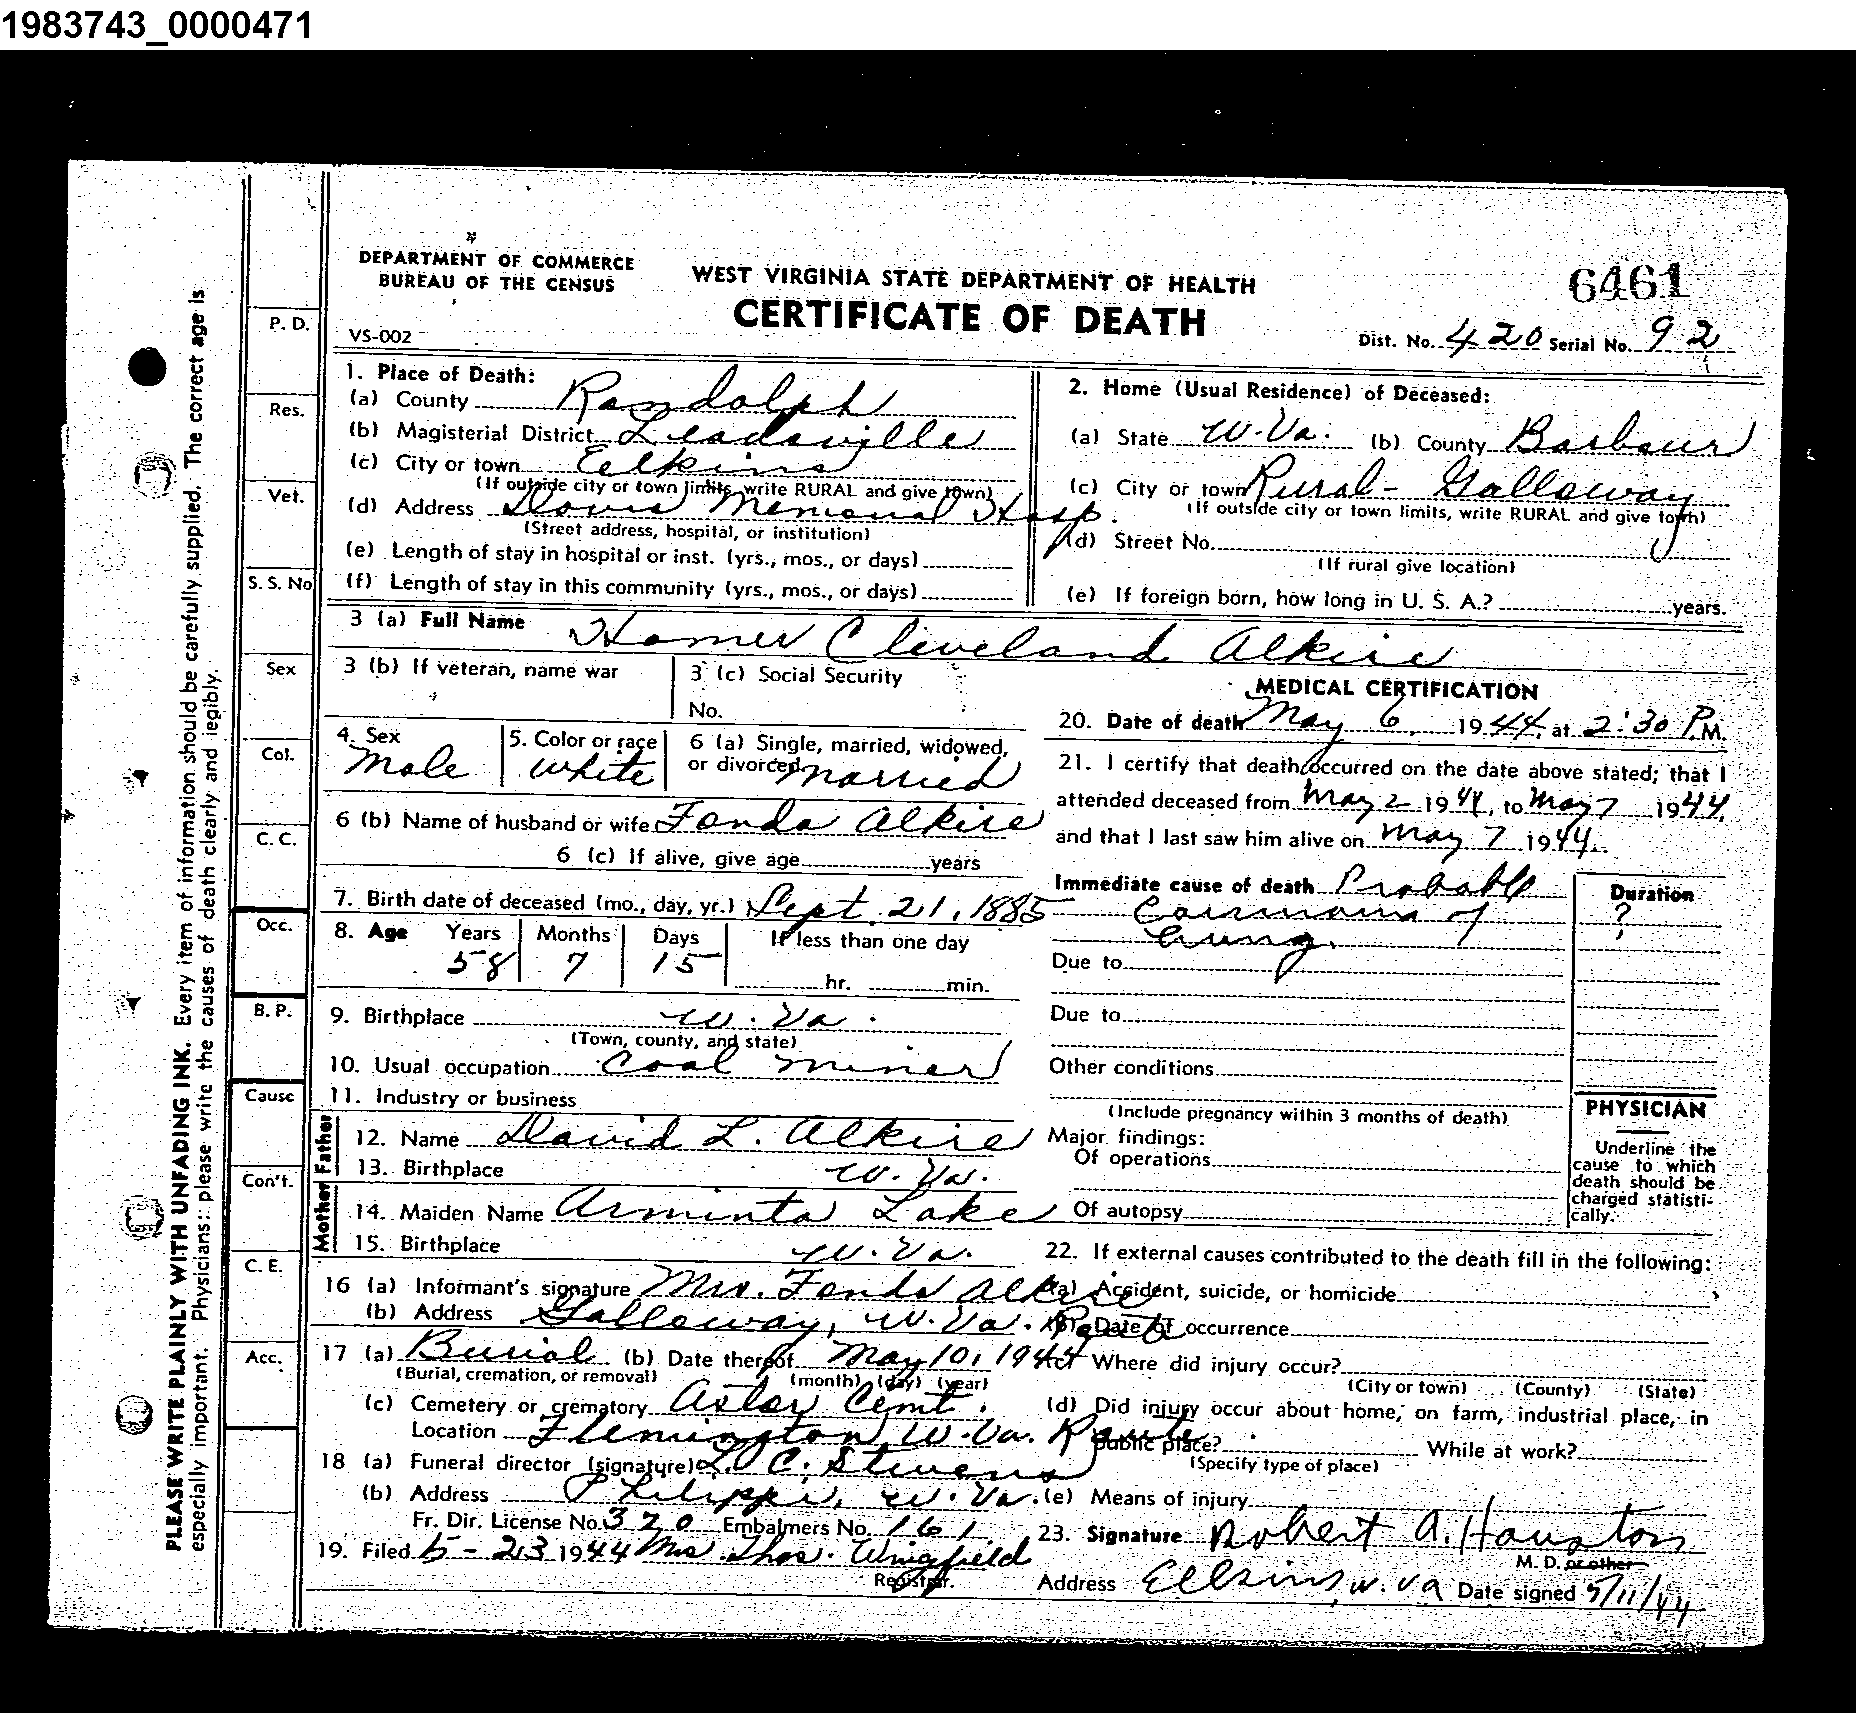 1983743_0000471
DEPARTMENT OF COMMERCE
BUREAU OF THE CENSUS
VS-002
WEST VIRGINIA STATE DEPARTMENT OF HEALTH
CERTIFICATE OF DEATH
6461
Dist. No. 420 Serial No. 92
PLEASE WRITE PLAINLY WITH UNFADING INK. Every item of information should be carefully supplied. The correct age is
especially important. Physicians: please write the causes of death clearly and legibly.
P. D.
Res.
Vet.
S. S. No
Sex
Col.
C. C.
Occ.
B. P.
Cause
Con't.
C. E.
Acc.
1. Place of Death:
(a) County Randolph
(b) Magisterial District Leadsville
(c) City or town Elkins
(If outside city or town limits, write RURAL and give town)
(d) Address Davis Memorial Hosp.
(Street address, hospital, or institution)
(e) Length of stay in hospital or inst. (yrs., mos., or days)
(f) Length of stay in this community (yrs., mos., or days)
2. Home (Usual Residence) of Deceased:
(a) State W. Va. (b) County Barbour
(c) City or town Rural - Galloway
(If outside city or town limits, write RURAL and give town)
(d) Street No.
(If rural give location)
(e) If foreign born, how long in U. S. A.? years.
3 (a) Full Name Homer Cleveland Alkire
3 (b) If veteran, name war
3 (c) Social Security
No.
4. Sex
Male
5. Color or race
White
6 (a) Single, married, widowed,
or divorced Married
6 (b) Name of husband or wife Fonda Alkire
6 (c) If alive, give age years
7. Birth date of deceased (mo., day, yr.) Sept. 21, 1885
8. Age Years Months Days If less than one day
58 7 15
hr. min.
9. Birthplace W. Va.
(Town, county, and state)
10. Usual occupation Coal miner
11. Industry or business
Father
12. Name David L. Alkire
13. Birthplace W. Va.
Mother
14. Maiden Name Arminta Lake
15. Birthplace W. Va.
16 (a) Informant's signature Mrs. Fonda Alkire
(b) Address Galloway, W. Va. Route
17 (a) Burial (b) Date thereof May 10, 1944
(Burial, cremation, or removal) (month) (day) (year)
(c) Cemetery or crematory Astor Cemt.
Location Flemington W. Va. Route
18 (a) Funeral director (signature) L. C. Stevens
(b) Address Philippi, W. Va.
Fr. Dir. License No. 320 Embalmers No. 161
19. Filed 5-23 1944 Mrs. Thos. Wingfield
Registrar.
MEDICAL CERTIFICATION
20. Date of death May 6 1944, at 2:30 P.M.
21. I certify that death occurred on the date above stated; that I
attended deceased from May 2 1944, to May 7 1944,
and that I last saw him alive on May 7 1944.
Immediate cause of death Probable
Carcinoma of
Lung.
Duration
?
?
Due to
Due to
Other conditions
(Include pregnancy within 3 months of death)
Major findings:
Of operations
Of autopsy
PHYSICIAN
Underline the
cause to which
death should be
charged statisti-
cally.
22. If external causes contributed to the death fill in the following:
(a) Accident, suicide, or homicide
(b) Date of occurrence
(c) Where did injury occur?
(City or town) (County) (State)
(d) Did injury occur about home, on farm, industrial place, in
public place? While at work?
(Specify type of place)
(e) Means of injury
23. Signature Robert A. Houston
M. D. or other
Address Elkins, W. Va Date signed 5/11/44